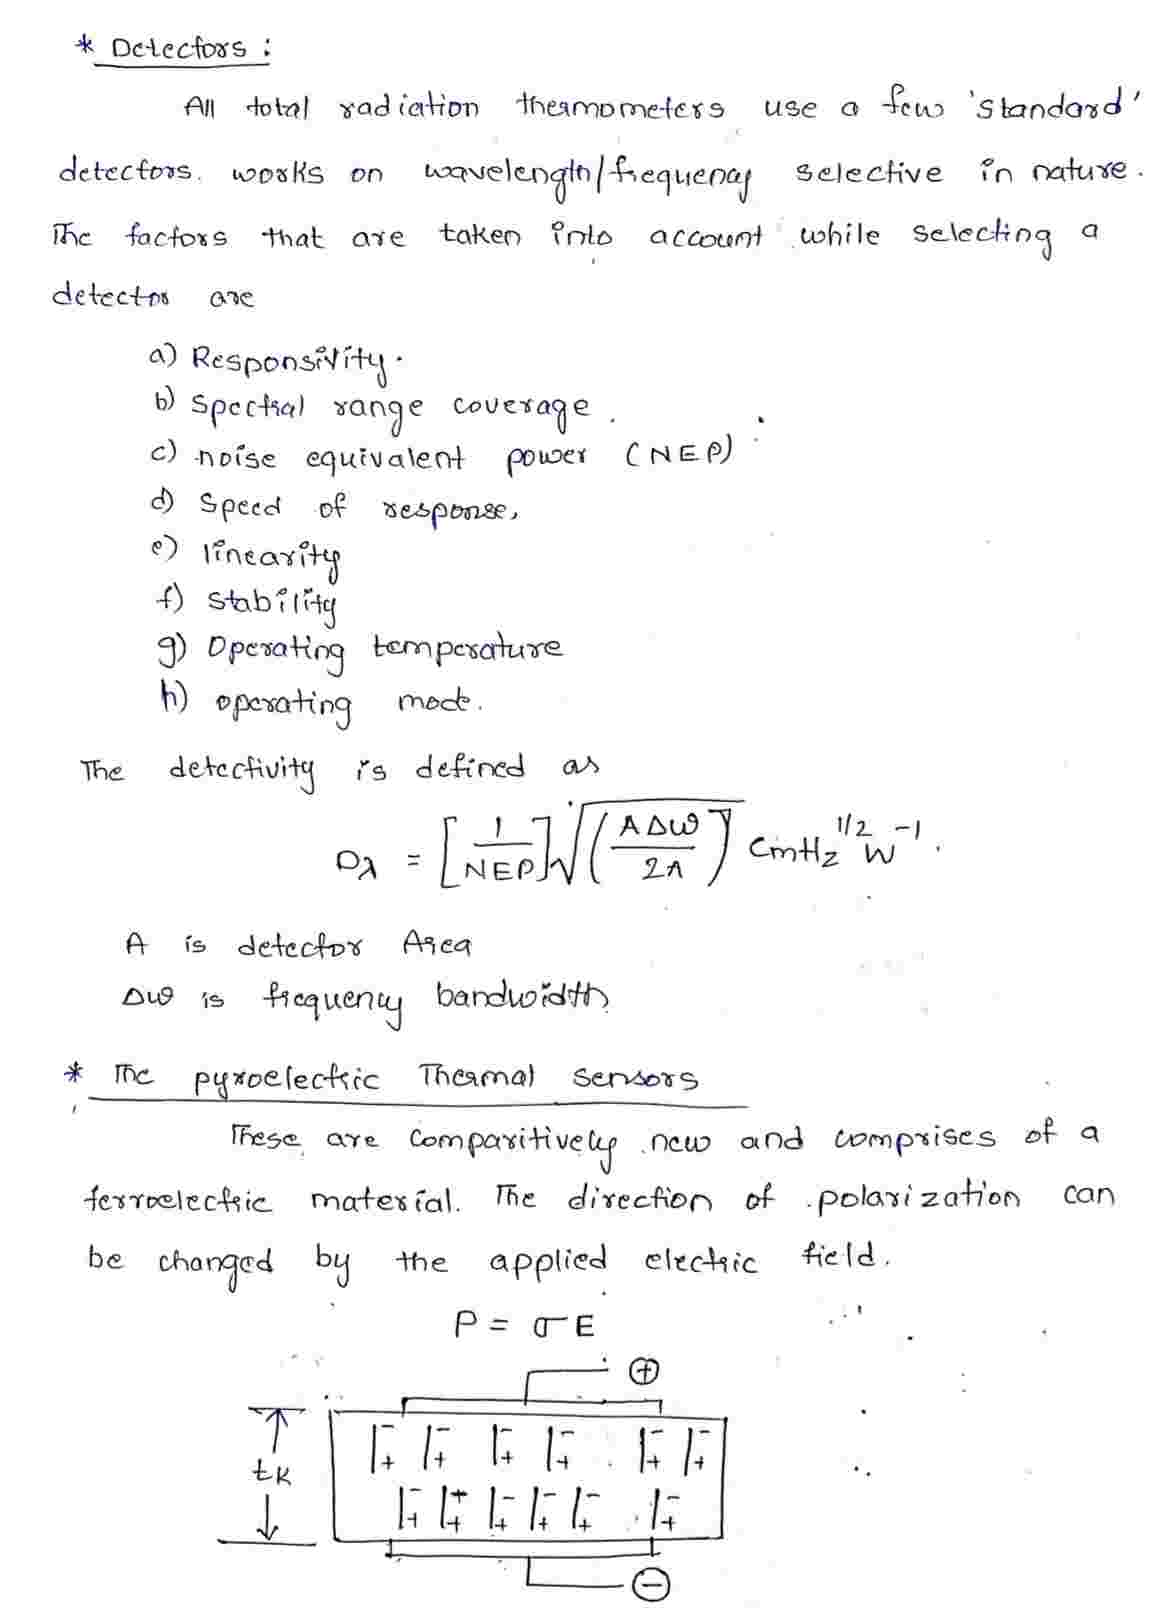 * Detectors :
All total radiation thermometers use a few 'standard'
detectors. works on wavelength/frequency selective in nature.
The factors that are taken into account while selecting a
detector are
a) Responsivity.
b) Spectral range coverage.
c) noise equivalent power (NEP)
d) Speed of response,
e) linearity
f) Stability
g) Operating temperature
h) operating mode.
The detectivity is defined as
Dλ = [1/NEP] √(AΔω/2Λ) CmHz^1/2 W^-1.
A is detector Area
Δω is frequency bandwidth
* The pyroelectric Thermal sensors
These are comparitively new and comprises of a
ferroelectric material. The direction of polarization can
be changed by the applied electric field.
P = σE
+
- - - - - -
+ + + + + +
tK
- + - - - -
+ + + + + +
-